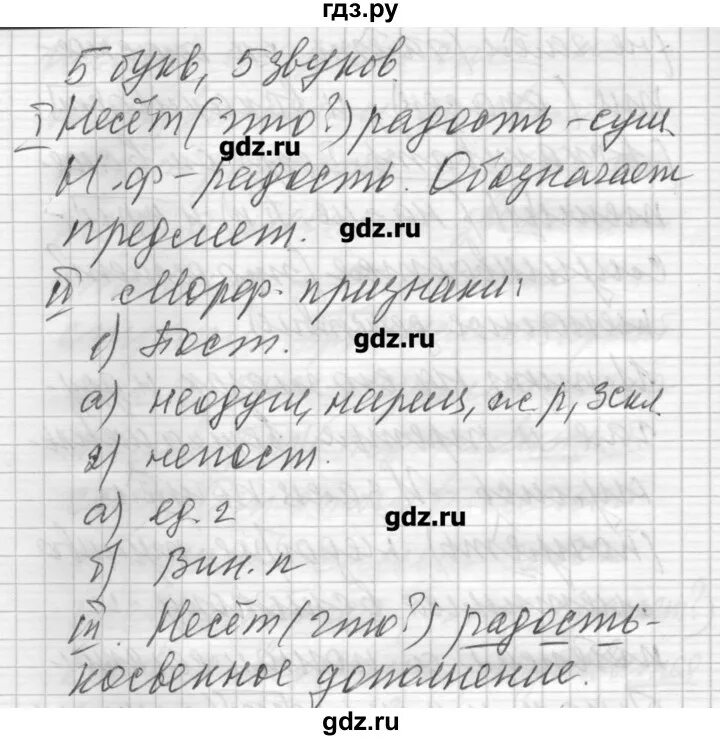 гдз.ру
5 букв, 5 звуков.
I Несёт (что?) радость - сущ.
gdz.ru
Н.ф - радость. Обозначает
предмет.
gdz.ru
II Морф. признаки:
1) Пост.
gdz.ru
а) неодуш, нариц, ж р, 3 скл
2) непост.
а) ед. ч
gdz.ru
б) Вин. п
III. Несёт (что?) радость-
косвенное дополнение.
gdz.ru